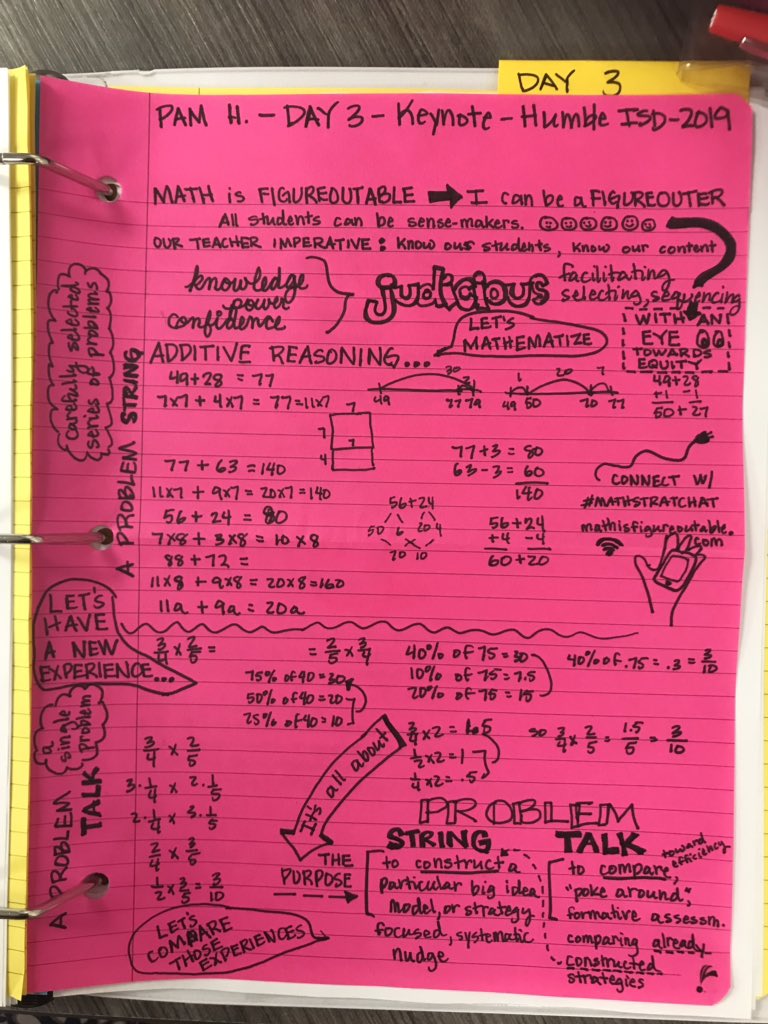 DAY 3
PAM H. - DAY 3 - Keynote - Humble ISD - 2019
MATH is FIGUREOUTABLE ➡ I can be a FIGUREOUTER
All students can be sense-makers.
OUR TEACHER IMPERATIVE: Know our students, know our content
knowledge
power
confidence
judicious
facilitating
selecting, sequencing
WITH AN
EYE
TOWARDS
EQUITY
LET'S
MATHEMATIZE
ADDITIVE REASONING...
49+28 = 77
7x7 + 4x7 = 77 = 11x7
7
7
7
4
30
2
49 77 79
1 20 7
49 50 70 77
49+28
+1 -1
50+27
Carefully selected
series of problems
A PROBLEM STRING
77 + 63 = 140
11x7 + 9x7 = 20x7 = 140
56 + 24 = 80
7x8 + 3x8 = 10 x 8
88 + 72 =
11x8 + 9x8 = 20x8 = 160
11a + 9a = 20a
56+24
50 6 20 4
70 10
77+3 = 80
63-3 = 60
140
56+24
+4 -4
60+20
CONNECT W/
#MATHSTRATCHAT
mathisfigureoutable.
com
LET'S
HAVE
A NEW
EXPERIENCE...
3/4 x 2/5 = = 2/5 x 3/4
75% of 40 = 30
50% of 40 = 20
25% of 40 = 10
40% of 75 = 30
10% of 75 = 7.5
20% of 75 = 15
40% of .75 = .3 = 3/10
3/4 x 2 = 1.5
1/2 x 2 = 1
1/4 x 2 = .5
so 3/4 x 2/5 = 1.5/5 = 3/10
a
single
problem
A PROBLEM
TALK
3/4 x 2/5
3 · 1/4 x 2 · 1/5
2 · 1/4 x 3 · 1/5
2/4 x 3/5
1/2 x 3/5 = 3/10
LET'S
COMPARE
THOSE
EXPERIENCES
It's all about
THE
PURPOSE
PROBLEM
STRING
to construct a
particular big idea,
model, or strategy
focused, systematic
nudge
TALK
to compare, toward efficiency
"poke around,"
formative assessm.
comparing already
constructed
strategies